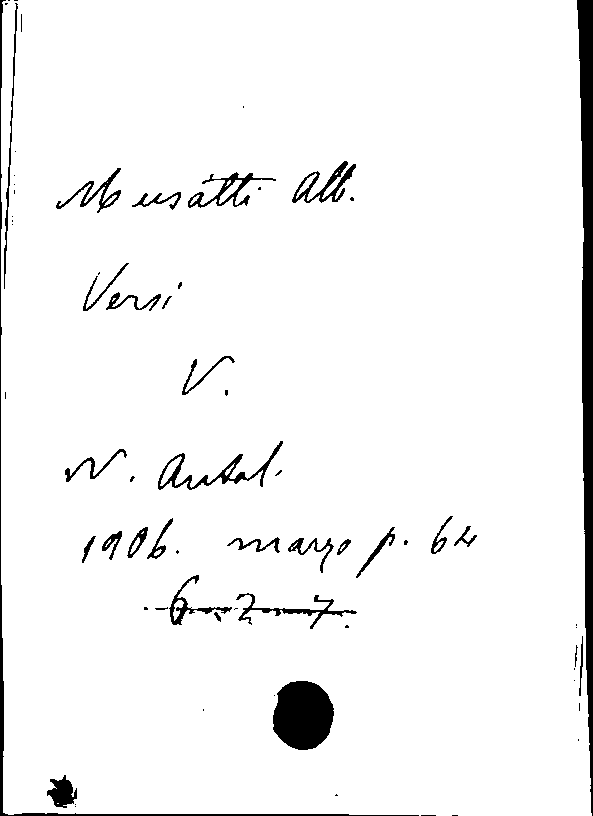 Musatti Alb.
Versi
V.
N. Antol.
1906. marzo p. 64
6. 2. 7.